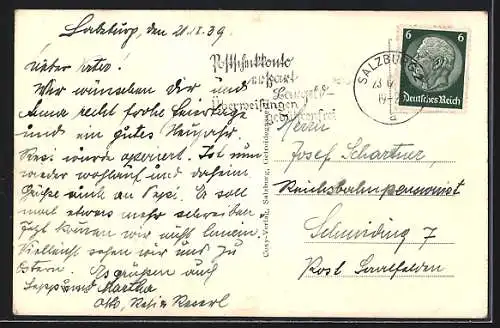 Salzburg, den 21.II.39.
Lieber Vater!
Wir wünschen dir und
Anna recht frohe Feiertage
und ein gutes Neujahr.
Resi wurde operiert. Ist nun
wieder wohlauf und daheim
Grüße auch an Pepi. Er soll
mal etwas mehr schreiben
Jetzt können wir nicht
Vielleicht sehen wir uns zu
Ostern. Es grüßen auch
Sepp und Martha
Otto, Resi
Postscheckkonto
erspart
Bargeld
Überweisungen
gebührenfrei
SALZBURG
6 6
Deutsches Reich
Cosy-Verlag, Salzburg,
Herrn
Josef Schartner
Reichsbahnpensionist
Schmiding 7
Post Saalfelden